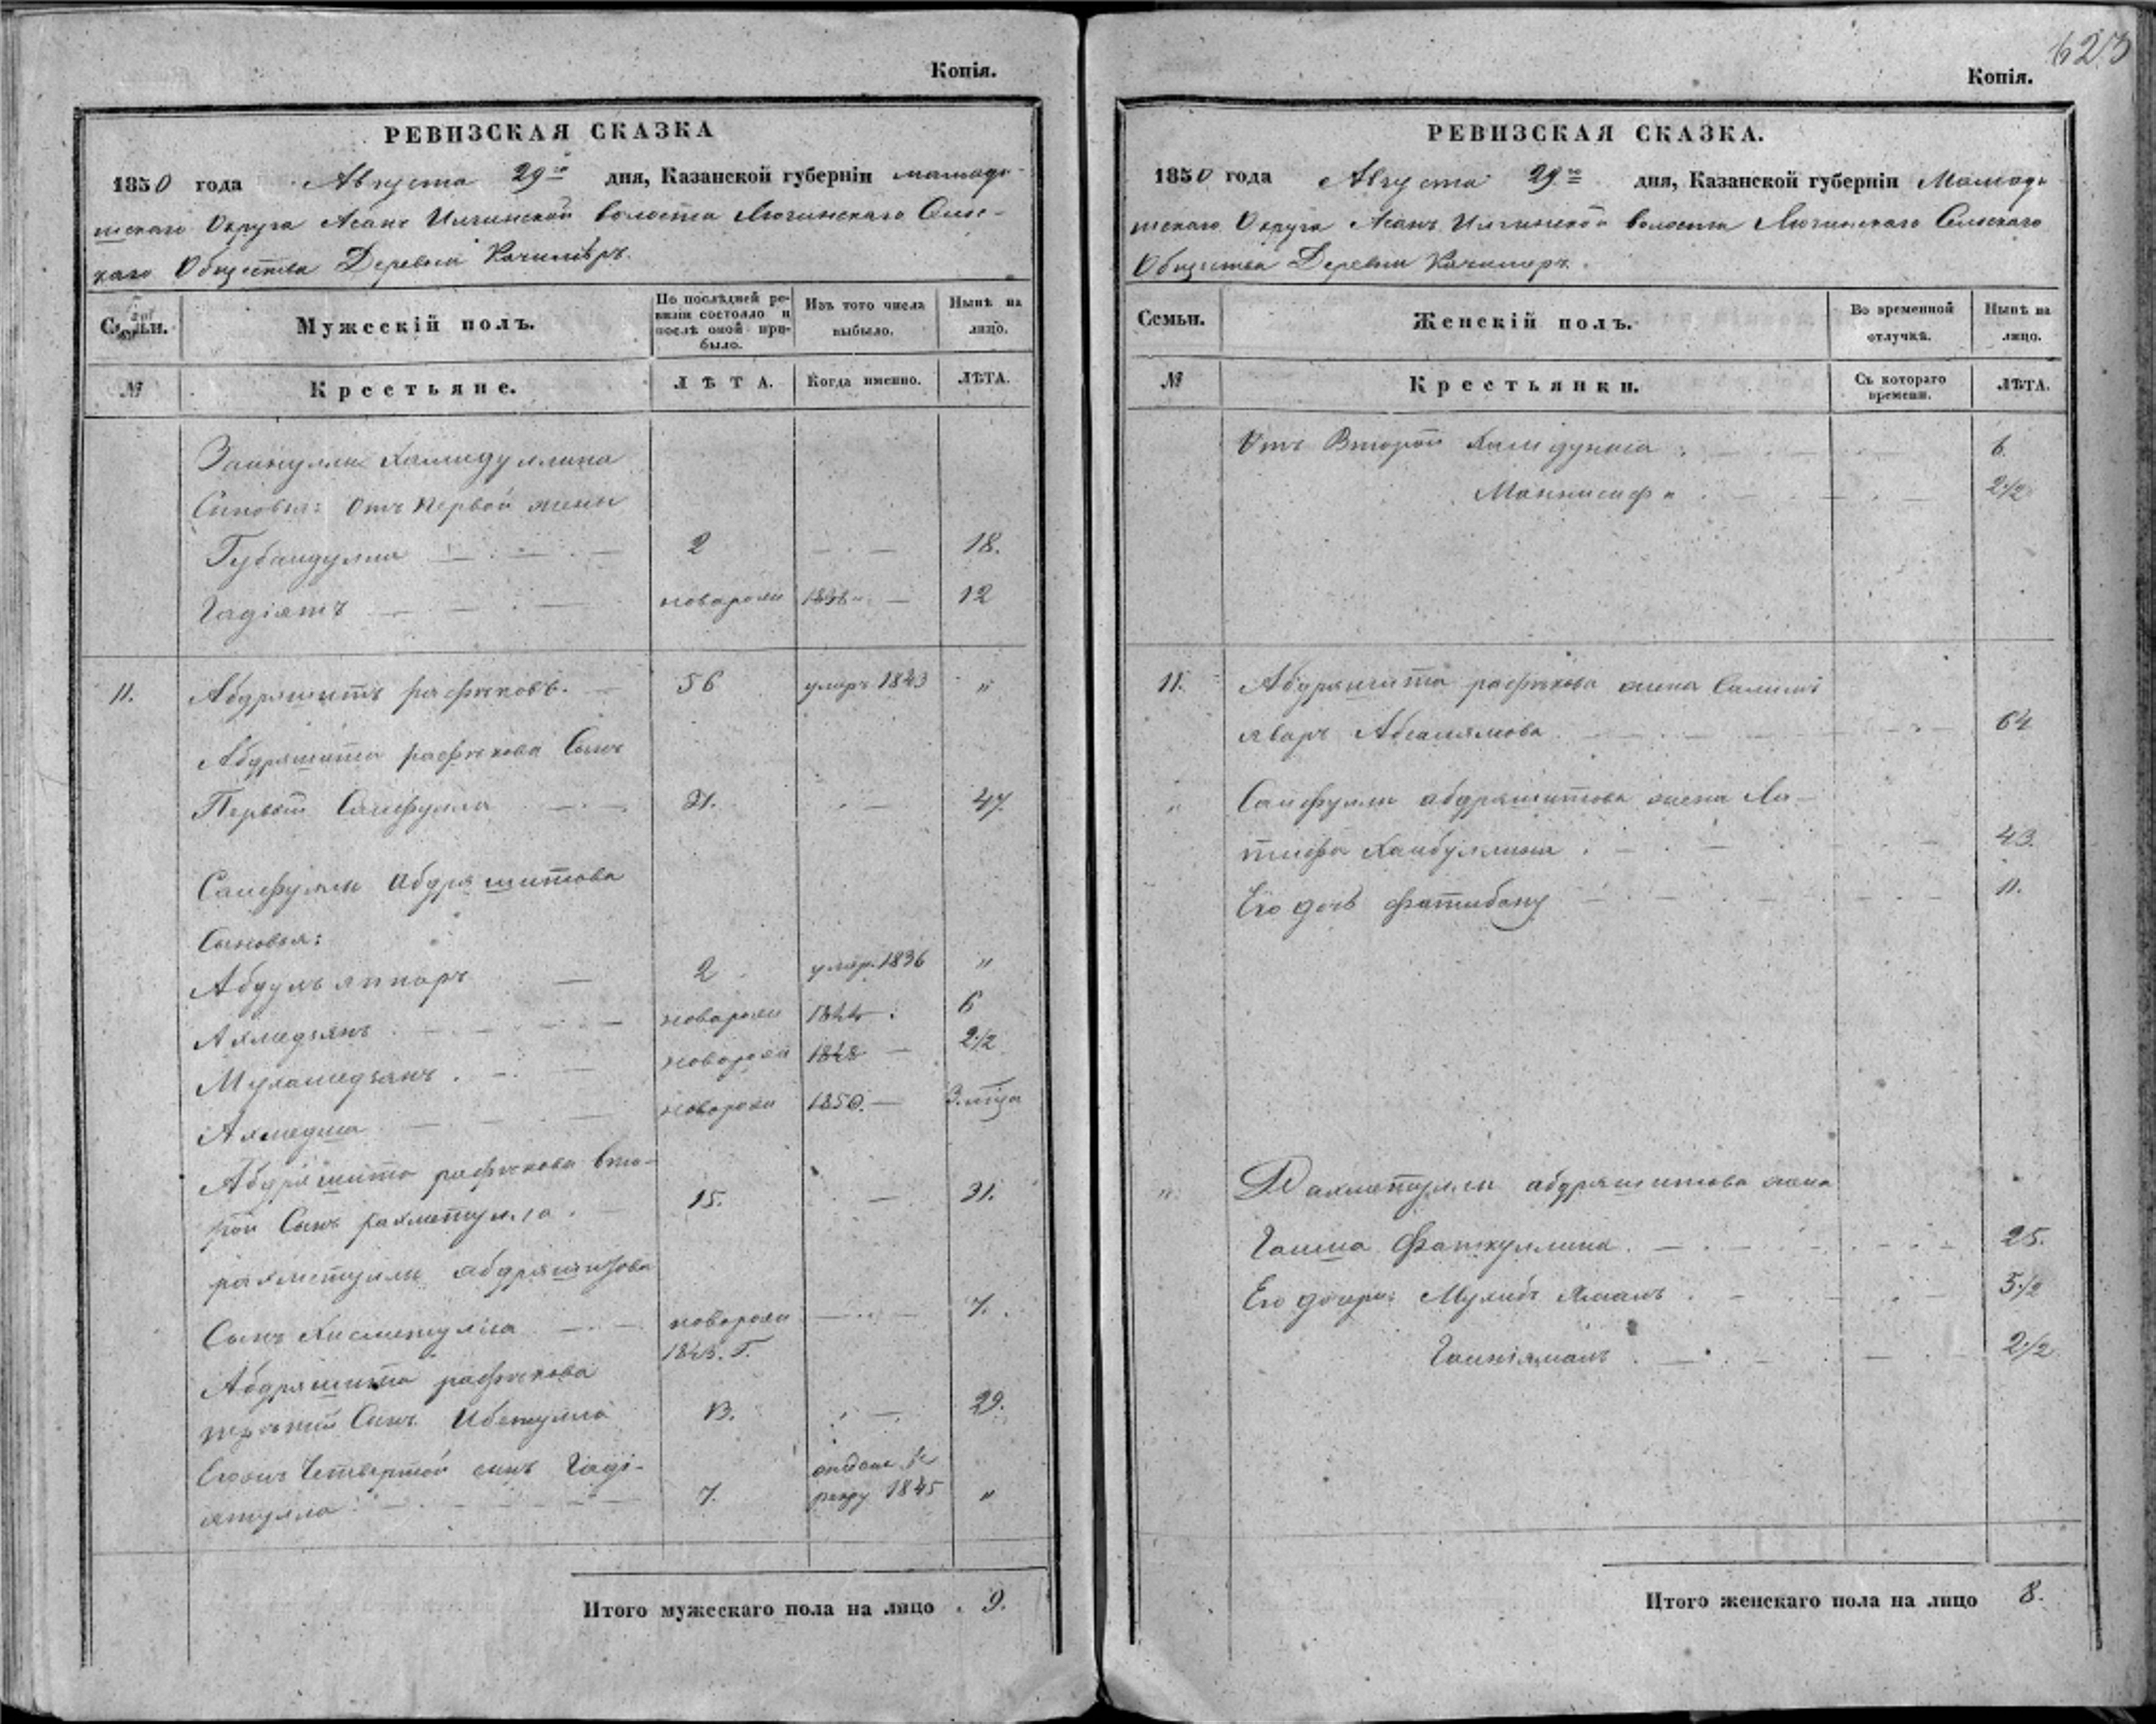 Копія.
РЕВИЗСКАЯ СКАЗКА
1850 года Августа 29го дня, Казанской губерніи мамады-
шскаго Округа Асанъ Илгинской волости Лючинскаго Сель-
каго Общества Деревни Качимѣръ.
Семьи. Мужескій полъ. По послѣдней ревизіи состояло и послѣ оной прибыло. Изъ того числа выбыло. Нынѣ на лицо.
№ Крестьяне. ЛѢТА. Когда именно. ЛѢТА.
Зайнуллы Хамидуллина
Сыновья: отъ первой жены
Губайдулла 2 18.
Гадіятъ новорожд 1838 12
11. Абдряшитъ рафиковъ. 56 умеръ 1843 "
Абдряшита рафикова Сынъ
Первый Сайфулла 31. 47.
Сайфуллы абдряшитова
Сыновья:
Абдулъ яппаръ 2 умер. 1836 "
Ахмедзянъ новорожд 1844 6
Мухамедзянъ новорожд 1848 2½
Ахмедша новорожд 1850. 3 мѣца
Абдряшита рафикова вто-
рой Сынъ рахметулла 15. 31.
рахметуллы абдряшитова
Сынъ Хисметулла новорожд 7.
1843. Г.
Абдряшита рафикова
третій Сынъ Ибетулла 13. 29.
Егожъ Четвертой сынъ Гади- отданъ въ
ятулла 7. рекру 1845 "
Итого мужескаго пола на лицо 9.
623
Копія.
РЕВИЗСКАЯ СКАЗКА.
1850 года Августа 29го дня, Казанской губерніи Мамады-
шскаго Округа Асанъ Илгинской волости Лючинскаго Сельскаго
Общества Деревни Качимеръ.
Семьи. Женскій полъ. Во временной отлучкѣ. Нынѣ на лицо.
№ Крестьянки. Съ котораго времени. ЛѢТА.
Отъ Второй 6.
2½
11. Абдряшита рафикова жена Салимъ
яваръ Абсалямова 64
" Сайфуллы абдряшитова жена Ла-
тифа Хайбуллина 43.
Его дочь фатибану 11.
" Рахметуллы абдряшитова жена
Гайша Фаткуллина 25.
Его дочери: Мухибъ Ямалъ 5½
Гайніямалъ 2½
Итого женскаго пола на лицо 8.